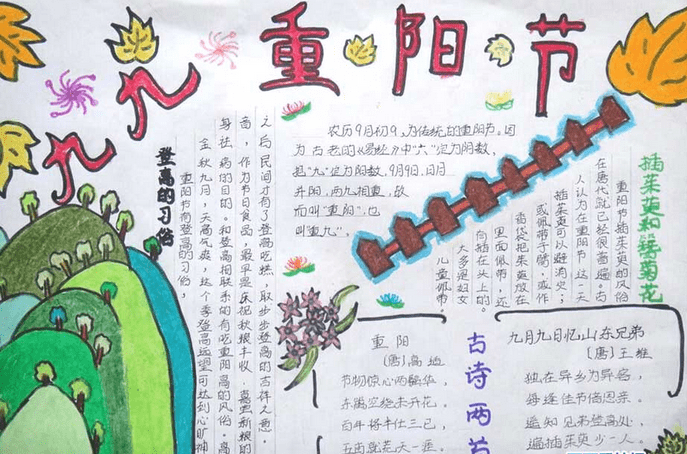 九九重阳节
农历9月初9,为传统的重阳节。因
为古老的《易经》中“六”定为阴数,
把“九”定为阳数,9月9日,日月
并阳,两九相重,故
而叫“重阳”,也
叫“重九”,
登高的习俗
重阳节有登高的习俗,
金秋九月,天高气爽,这个季登高远望可达到心旷神
身祛病的目的。和登高相联系的有吃重阳高的风俗。高
音,作为节日食品,最早是庆祝秋粮丰收、喜尝新粮的
之后民间才有了登高吃糕,取步步登高的吉祥之意。
插茱萸和簪菊花
重阳节插茱萸的风俗
在唐代就已经很普遍。古
人认为在重阳节这一天
插茱萸可以避消灾;
或佩带于臂,或作
香袋把茱萸放在
里面佩带,还
有插在头上的。
大多是妇女
儿童佩带。
古诗两首
重阳
(唐)高适
节物惊心两鬓华,
东篱空绕未开花。
百年将半仕三已,
五亩就荒天一涯。
九月九日忆山东兄弟
(唐)王维
独在异乡为异客,
每逢佳节倍思亲。
遥知兄弟登高处,
遍插茱萸少一人。